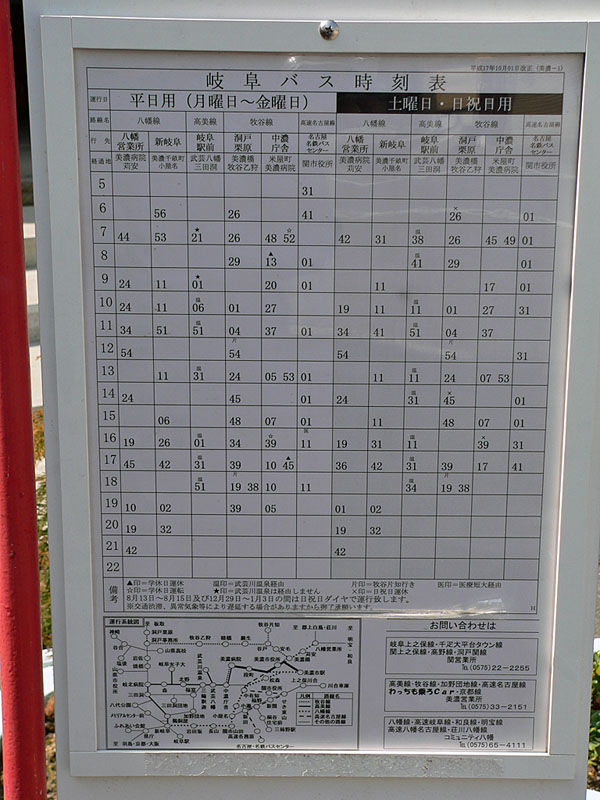 平成17年10月01日改正 (美濃-1)
岐阜バス時刻表
運行日 平日用 (月曜日～金曜日) 土曜日・日祝日用
路線名 八幡線 高美線 牧谷線 高速名古屋線 八幡線 高美線 牧谷線 高速名古屋線
行先 八幡営業所 新岐阜 岐阜駅前 洞戸栗原 中濃庁舎 名古屋名鉄バスセンター 八幡営業所 新岐阜 岐阜駅前 洞戸栗原 中濃庁舎 名古屋名鉄バスセンター
経過地 美濃病院苅安 美濃千畝町小屋名 武芸八幡三田洞 美濃橋牧谷乙狩 米屋町美濃病院 関市役所 美濃病院苅安 美濃千畝町小屋名 武芸八幡三田洞 美濃橋牧谷乙狩 米屋町美濃病院 関市役所
5 31
6 56 26 41 ×26 01
7 44 53 ★21 26 48 ☆52 42 31 温38 26 45 49 01
8 29 ▲13 01 温41 29 01
9 24 11 ★01 20 01 11 17 01
10 24 11 温06 01 27 19 11 温11 01 27 31
11 34 51 温51 04 37 01 34 41 温51 04 37
12 54 片54 54 片54 31
13 11 温31 24 05 53 01 11 温11 24 07 53
14 24 45 01 24 温31 ×45 01
15 06 48 07 01 11 48 07 01
16 19 26 温01 34 ☆39 医11 19 31 温11 ×39 31
17 45 42 温31 39 10 ▲45 36 42 温31 39 17 41
18 温51 片19 38 10 11 温34 片19 38
19 10 02 39 05 01 02
20 19 32 19 32
21 42 42
22
備考
▲印＝学休日運休 温印＝武芸川温泉経由 片印＝牧谷片知行き 医印＝医療短大経由
☆印＝学休日運転 ★印＝武芸川温泉は経由しません ×印＝日祝日運休
8月13日～8月15日及び12月29日～1月3日の間は日祝日ダイヤで運行致します。
※交通渋滞、異常気象等により遅延する場合がありますから御了承願います。
運行系統図
お問い合わせは
岐阜上之保線・千疋大平台タウン線
関上之保線・高野線・洞戸関線
関営業所
℡(0575)22-2255
高美線・牧谷線・加野団地線・高速名古屋線
わっちも乗ろCar・京都線
美濃営業所
℡(0575)33-2151
八幡線・高速岐阜線・和良線・明宝線
高速八幡名古屋線・荘川八幡線
コミュニティ八幡
℡(0575)65-4111
凡例 路線名
牧谷線
高美線
八幡線
高速名古屋線
その他の路線
名古屋・名鉄バスセンター